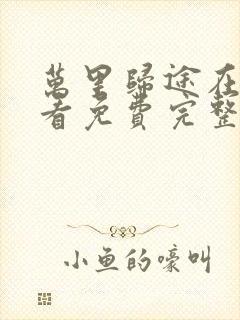 萬里歸途在
看免費完整
小魚的嚎叫